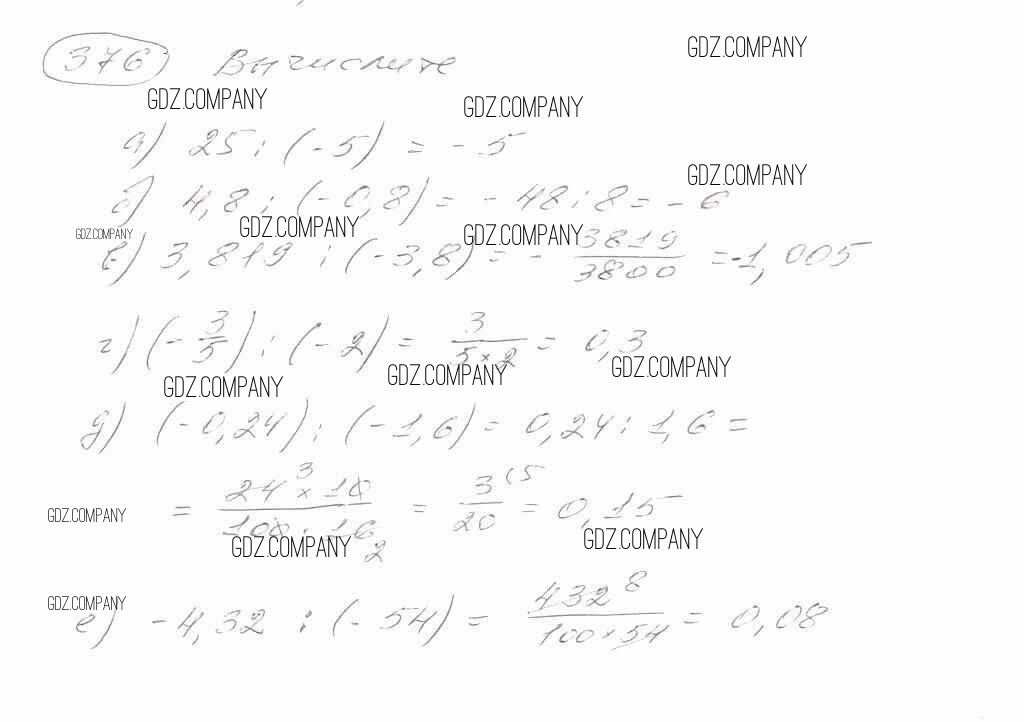 376 Вычислите
GDZ.COMPANY
GDZ.COMPANY
GDZ.COMPANY
а) 25 : (-5) = -5
GDZ.COMPANY
б) 4,8 : (-0,8) = -48 : 8 = -6
GDZ.COMPANY
GDZ.COMPANY
GDZ.COMPANY
в) 3,819 : (-3,8) = - 3819/3800 = -1,005
г) (-3/5) : (-2) = 3/(5×2) = 0,3
GDZ.COMPANY
GDZ.COMPANY
GDZ.COMPANY
д) (-0,24) : (-1,6) = 0,24 : 1,6 =
= (24 3 × 10)/(100 · 16 2) = 3/20 (5 = 0,15
GDZ.COMPANY
GDZ.COMPANY
GDZ.COMPANY
GDZ.COMPANY
е) -4,32 : (-54) = 432 8/(100 × 54) = 0,08